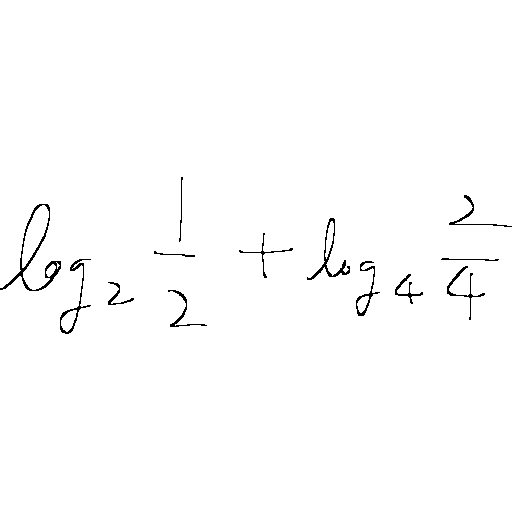 \log_2 \frac{1}{2} + \log_4 \frac{2}{4}